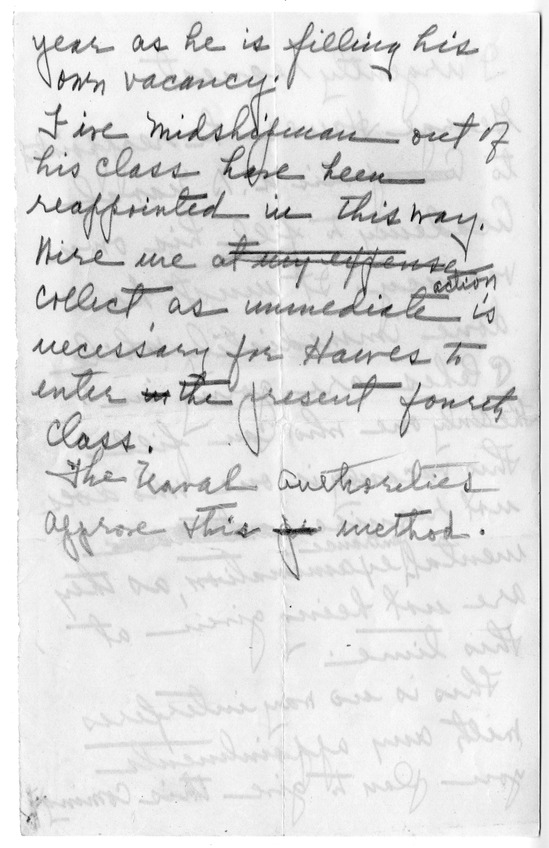 year as he is filling his
own vacancy.
Five Midshipman out of
his class have been
reappointed in this way.
Wire me at my expense
collect as immediate action is
necessary for Hawes to
enter in the present fourth
class.
The Naval authorities
approve this method.